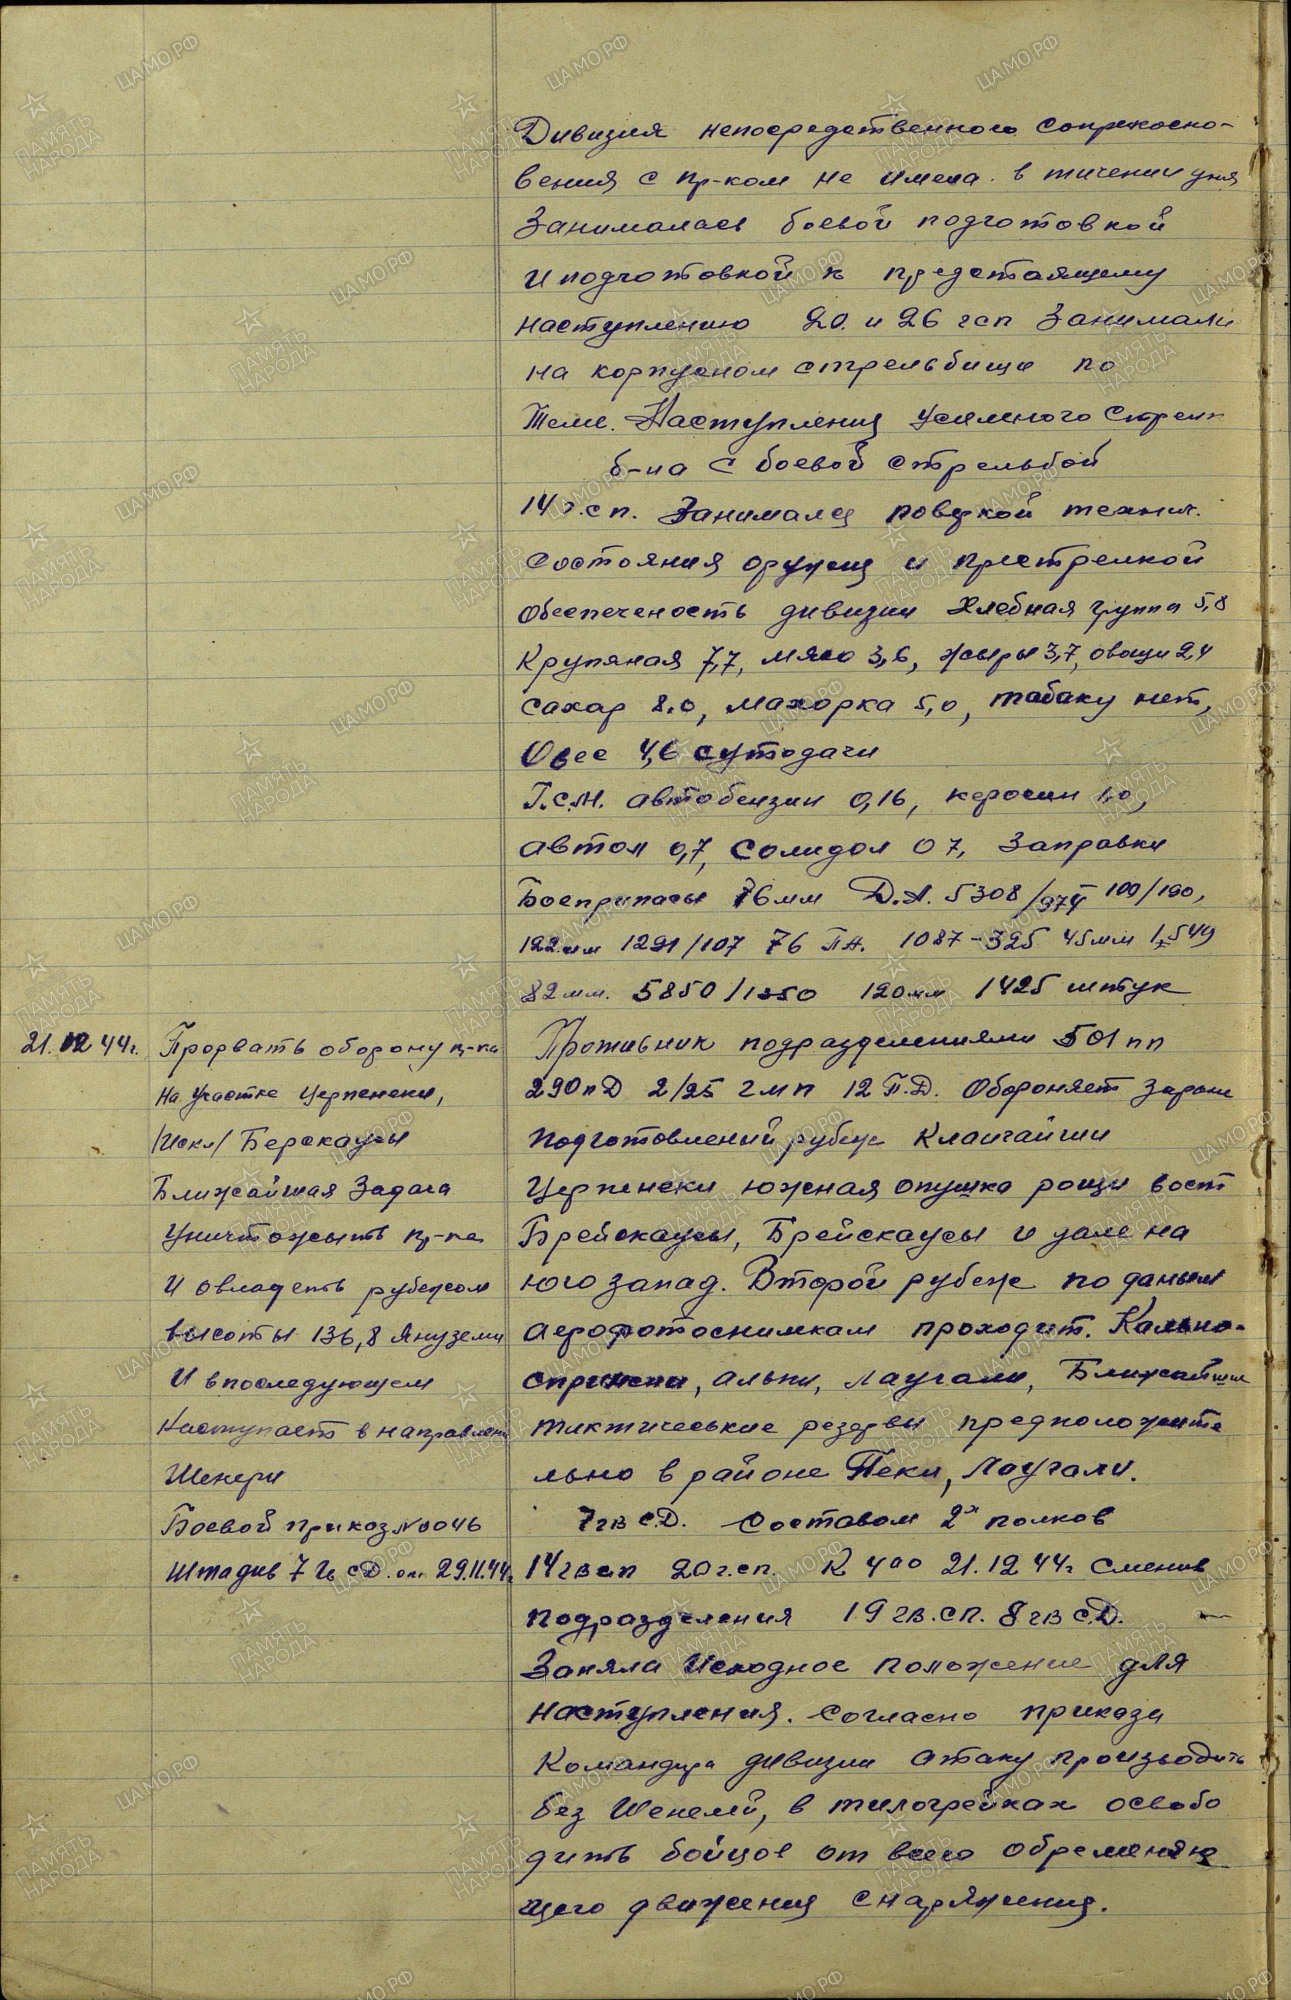 Дивизия непосредственного соприкосно-
вения с пр-ком не имела. в тичении дня
Занималась боевой подготовкой
и подготовкой к предстаящему
наступлению 20. и 26 гсп Занимали
на корпусном стрельбище по
Теме. Наступления усиленого Стрелк
б-на с боевой стрельбой
14 г.сп. Занимался поверкой технич.
состояния оружия и пристрелкой
Обеспеченость дивизии Хлебная группа 5,8
Крупяная 7,7, мясо 3,6, жыры 3,7, овощи 2,4
сахар 8.0, махорка 5,0, табаку нет,
Овес 4,6 сутодачи
Г.С.М. автобензин 0,16, керосин 1,0,
автол 0,7, Солидол 0 7, Заправки
Боеприпасы 76мм Д.А. 5308/974 100/190,
122мм 1291/107 76 ПА. 1087-325 45мм 1549
82мм. 5850/1350 120мм 1425 штук
21.12 44г.
Прорвать оборону пр-ка
на участке Церпенеки,
/Искл/ Берскаусы
Ближайшая Задача
Уничтожыть пр-ка
И овладеть рубежом
высоты 136,8 Януземи
И впоследующем
Наступает в направлени
Шенери
Боевой приказ N 0046
Штадив 7 Гв СД. от 29.11.44г
Противник подразделениями 501 пп
290пД 2/25 гмп 12 П.Д. Обороняет Заране
подготовлений рубеж Клаигайши
Церпенеки южная опушка рощи вост
Брейскаусы, Брейскаусы и дале на
юго запад. Второй рубеж по даным
аерофотоснимкам проходит. Кально-
, альпи, Лаугали, Ближайшие
тиктические резервы предположите
льно в районе Пеки, Лаугали.
7 гв С.Д. Составом 2х полков
14 гвсп 20 г.сп. К 4 00 21.12 44г Сменив
подразделения 19 гв.сп. 8 гв С.Д.
Заняла Исходное положение для
наступления. Согласно приказа
Командира дивизии атаку производить
без Шенелей, в тилогрейках освобо
дить бойцов от всего обременяю
щего движения снаряжения.
ПАМЯТЬ НАРОДА
ЦАМО.РФ